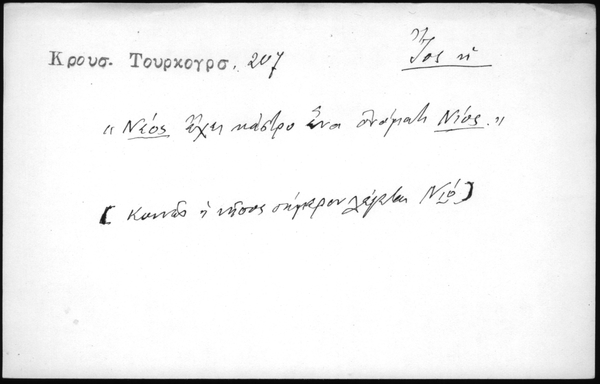 Κρουσ. Τουρκογρ. 207
Ἴος ἡ
« Νέος ἔχει κάστρο ἕνα ὀνόματι Νίος. »
[ Κοινῶς ἡ νῆσος σήμερον λέγεται Νιό ]